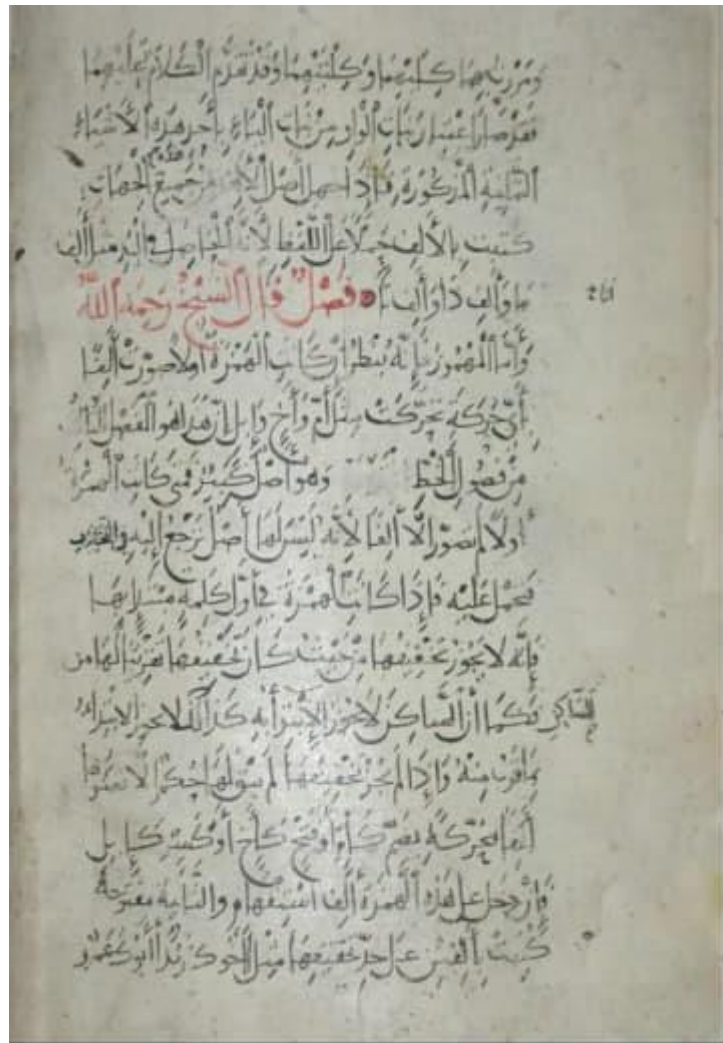 ومررت بهما كليهما وكلتيهما وقد تقدم الكلام عليهما
فقد صار اعتبار بنات الواو من بنات الياء بأحد هذه الأشياء
الثمانية المذكورة فإذا جهل أصل الألف من جميع الجهات
كتبت بالألف حملا على اللفظ لأنه الحاصل في اليد مثل ألف
ما وألف ذا وألف فصل قال الشيخ رحمه الله
وأما المهموز فإنه ينظر إن كانت الهمزة أولا صورت ألفا
بأي حركة تحركت مثل أم وأخ وإبل لأن هذا هو الفصل الثالث
من فصول الخط وهو أصل كبير فمتى كانت الهمزة
أولا لم تصور إلا ألفا لأنه ليس لها أصل ترجع إليه
فتحمل عليه فإذا كانت الهمزة في أول كلمة مبتدإ بها
فإنه لا يجوز تخفيفها من حيث كان تخفيفها تقريبا لها من
الساكن فكما أن الساكن لا يجوز الابتداء به كذلك لا يجوز الابتداء
بما قرب منه وإذا لم يجز تخفيفها لم
ألفا بحركة بضم كأم أو فتح كأخ أو كسر كإبل
فإن دخل على هذه الهمزة ألف استفهام والثانية مفتوحة
كتبت بألفين على حد تخفيفها مثل أأبوك عمرو